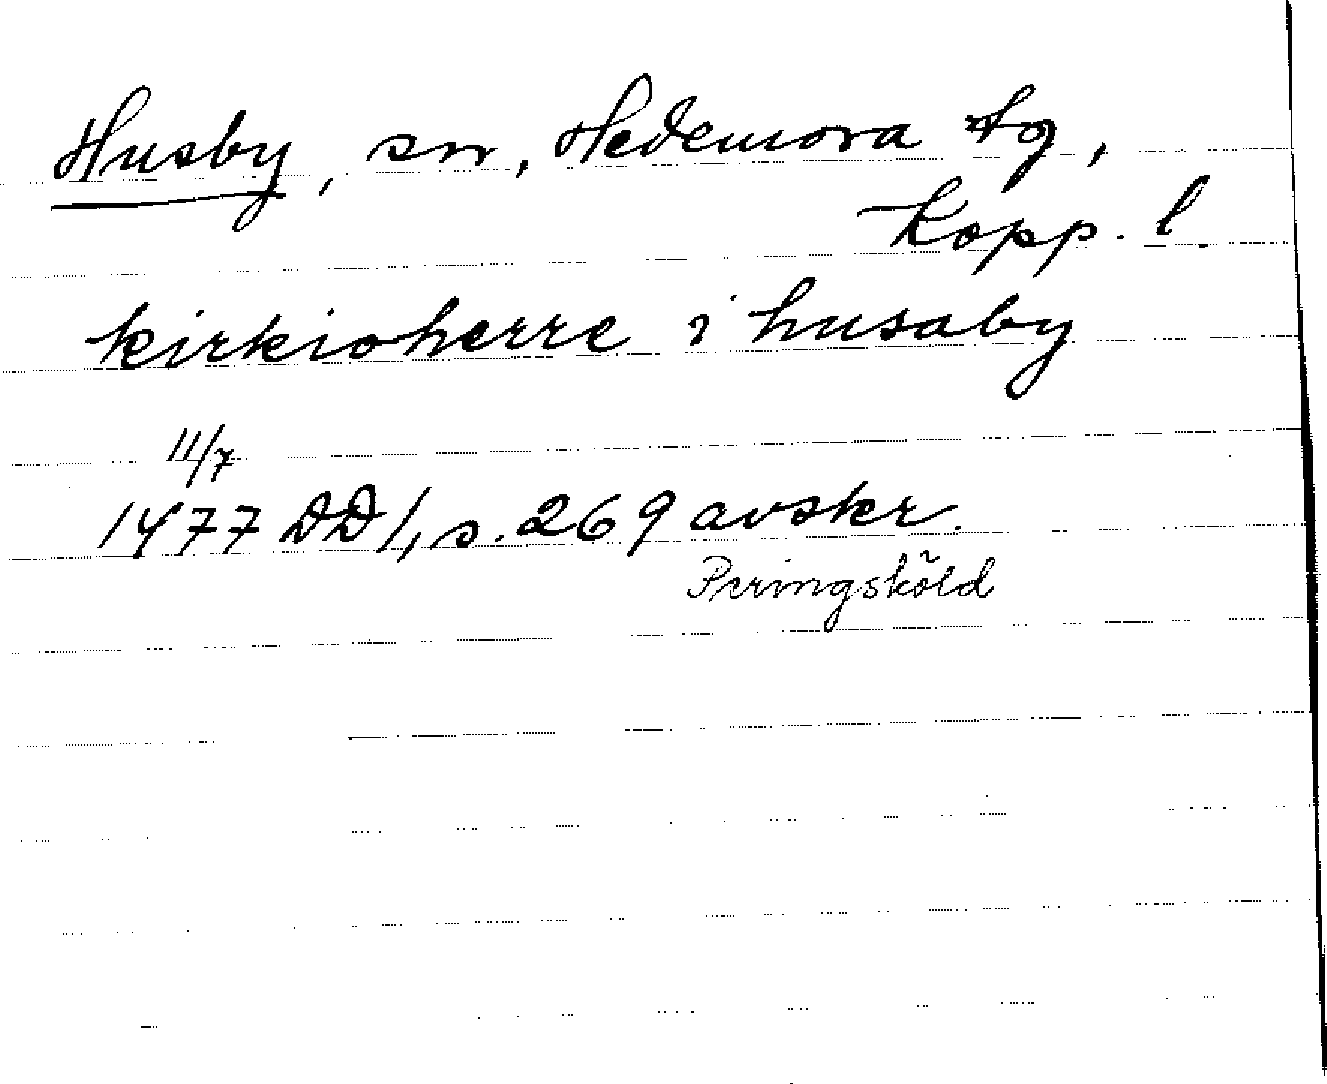 Husby, sn, Hedemora tg,
Kopp. l.
kirkioherre i husaby
11/7
1477 DD 1, s. 269 avskr.
Peringsköld